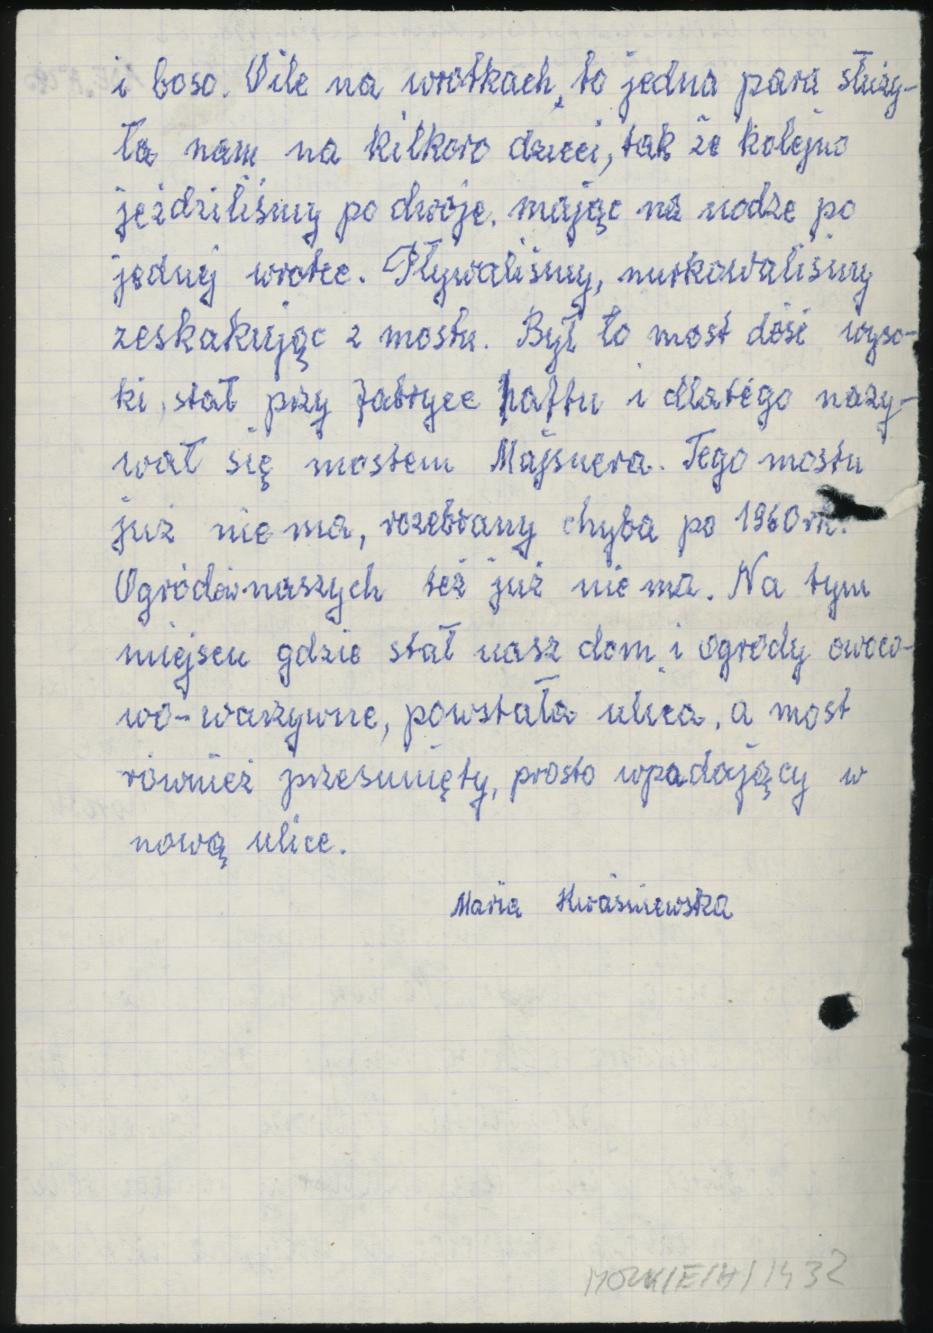 i boso. O ile na wrotkach, to jedna para służy-
ła nam na kilkoro dzieci, tak że kolejno
jeździliśmy po dwoje, mając na nodze po
jednej wrotce. Pływaliśmy, nurkowaliśmy
zeskakując z mostu. Był to most dość wyso-
ki, stał przy fabryce haftu i dlatego nazy-
wał się mostem Majsnera. Tego mostu
już nie ma, rozebrany chyba po 1960 r.
Ogrodów naszych też już nie ma. Na tym
miejscu gdzie stał nasz dom i ogrody owoco-
wo-warzywne, powstała ulica, a most
również przesunięty, prosto wpadający w
nową ulice.
Maria Kwaśniewska
MOZK/E/A/1432